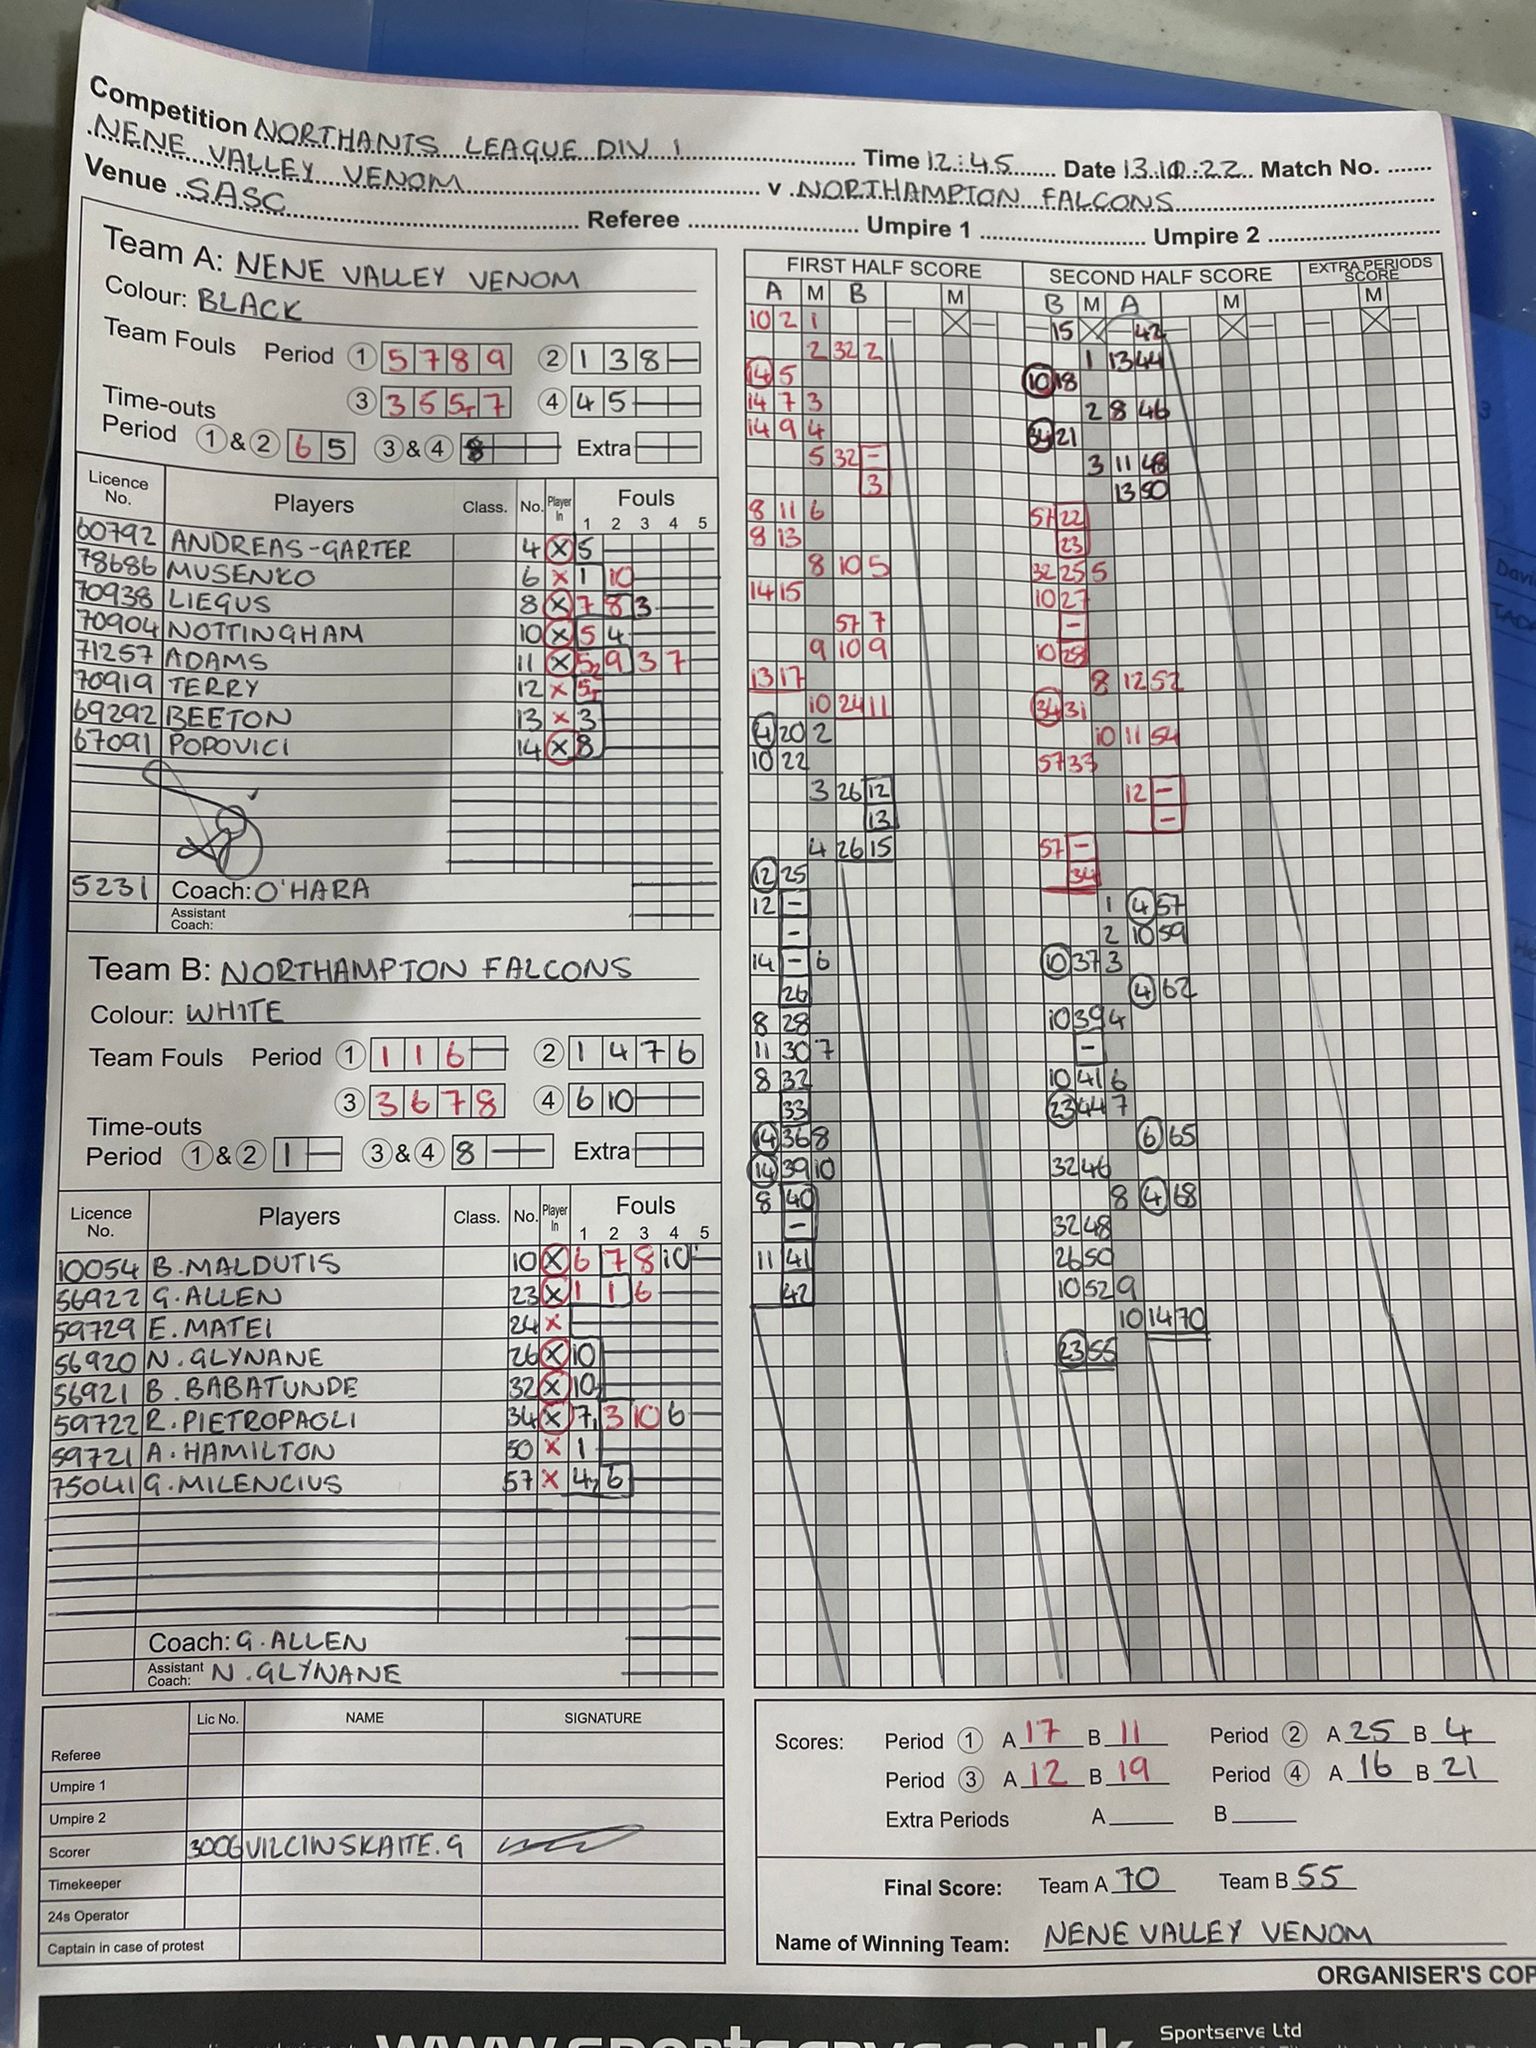 Competition NORTHANTS LEAGUE DIV 1 Time 12:45 Date 13.10.22 Match No.
NENE VALLEY VENOM v NORTHAMPTON FALCONS
Venue SASC Referee Umpire 1 Umpire 2
Team A: NENE VALLEY VENOM
Colour: BLACK
Team Fouls Period 1 5 7 8 9 2 1 3 8 —
3 3 5 5 7 4 4 5
Time-outs
Period 1 & 2 6 5 3 & 4 8 Extra
Licence No. Players Class. No. Player In Fouls
1 2 3 4 5
60792 ANDREAS-GARTER 4 X 5
78686 MUSENKO 6 X 1 10
70938 LIEGUS 8 X 7 8 3
70904 NOTTINGHAM 10 X 5 4
71257 ADAMS 11 X 5 9 3 7
70919 TERRY 12 X 5
69292 BEETON 13 X 3
67091 POPOVICI 14 X 8
5231 Coach: O'HARA
Assistant Coach:
Team B: NORTHAMPTON FALCONS
Colour: WHITE
Team Fouls Period 1 1 1 6 — 2 1 4 7 6
3 3 6 7 8 4 6 10
Time-outs
Period 1 & 2 1 — 3 & 4 8 — Extra
Licence No. Players Class. No. Player In Fouls
1 2 3 4 5
10054 B. MALDUTIS 10 X 6 7 8 10
56922 G. ALLEN 23 X 1 1 6
59729 E. MATEI 24 X
56920 N. GLYNANE 26 X 10
56921 B. BABATUNDE 32 X 10
59722 R. PIETROPAOLI 34 X 7 3 10 6
59721 A. HAMILTON 50 X 1
75041 G. MILENCIUS 57 X 4 6
Coach: G. ALLEN
Assistant Coach: N. GLYNANE
Lic No. NAME SIGNATURE
Referee
Umpire 1
Umpire 2
Scorer VILCINSKAITE. G
Timekeeper
24s Operator
Captain in case of protest
FIRST HALF SCORE SECOND HALF SCORE EXTRA PERIODS SCORE
A M B M B M A M M
10 2 1
2 32 2
14 5
14 7 3
14 9 4
5 32 –
3
8 11 6
8 13
8 10 5
14 15
57 7
9 10 9
13 17
10 24 11
4 20 2
10 22
3 26 12
13
4 26 15
12 25
12 –
–
14 – 6
26
8 28
11 30 7
8 32
33
14 36 8
14 39 10
8 40
–
11 41
42
15 42
1 13 44
10 18
2 8 46
34 21
3 11 48
13 50
57 22
23
32 25 5
10 27
–
10 28
8 12 52
34 31
10 11 54
57 33
12 –
–
57 –
34
1 4 57
2 10 59
10 37 3
4 62
10 39 4
–
10 41 6
23 44 7
6 65
32 46
8 4 68
32 48
26 50
10 52 9
10 14 70
23 55
Scores: Period 1 A 17 B 11 Period 2 A 25 B 4
Period 3 A 12 B 19 Period 4 A 16 B 21
Extra Periods A B
Final Score: Team A 70 Team B 55
Name of Winning Team: NENE VALLEY VENOM
ORGANISER'S COP
Sportserve Ltd